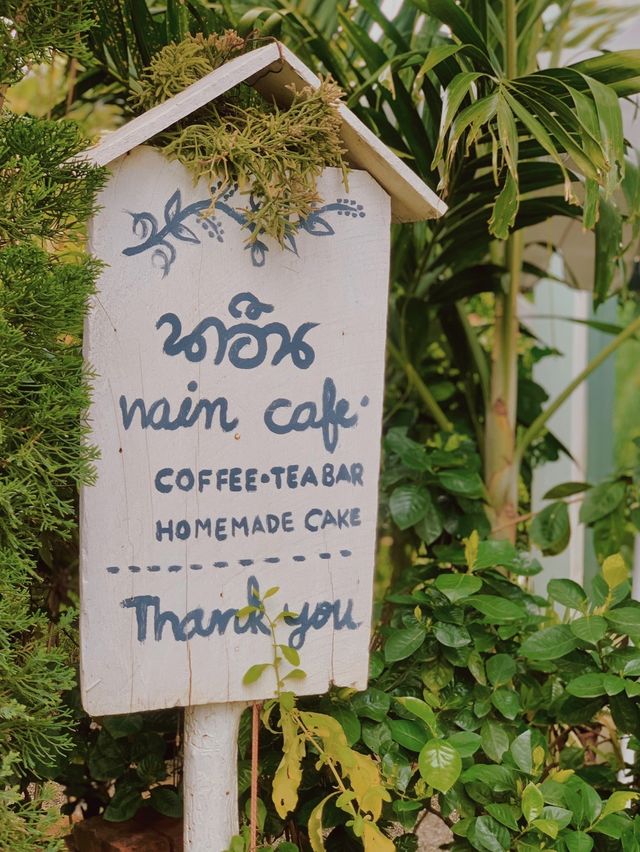 นาอิ๊น
nain cafe
COFFEE•TEA BAR
HOMEMADE CAKE
Thank you